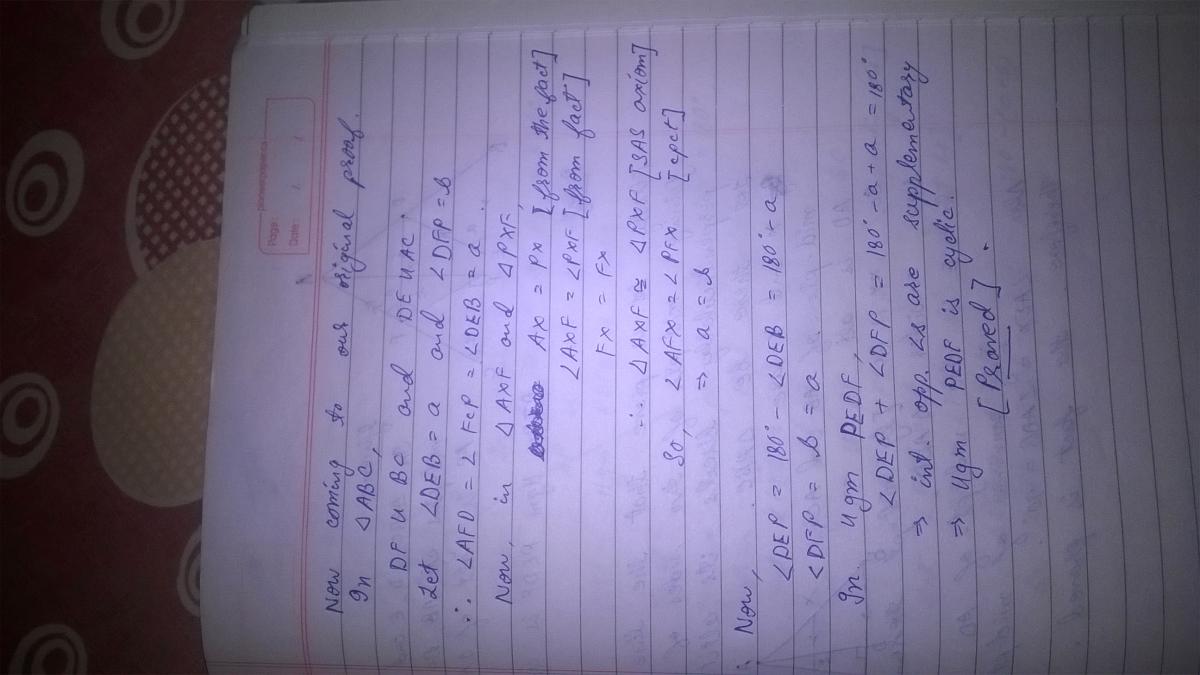 Page:
Date:
Now coming to our original proof.
In ΔABC,
DF || BC and DE || AC.
Let ∠DEB = a and ∠DFP = b
∴ ∠AFD = ∠FCP = ∠DEB = a
Now, in ΔAXF and ΔPXF,
AX = PX [from the fact]
∠AXF = ∠PXF [from fact]
FX = FX
∴ ΔAXF ≅ ΔPXF [SAS axiom]
So, ∠AFX = ∠PFX [cpct]
⇒ a = b
Now,
∠DEP = 180° - ∠DEB = 180° - a
∠DFP = b = a
In ||gm PEDF,
∠DEP + ∠DFP = 180° - a + a = 180°
⇒ int. opp. ∠s are supplementary
⇒ ||gm PEDF is cyclic.
[Proved].